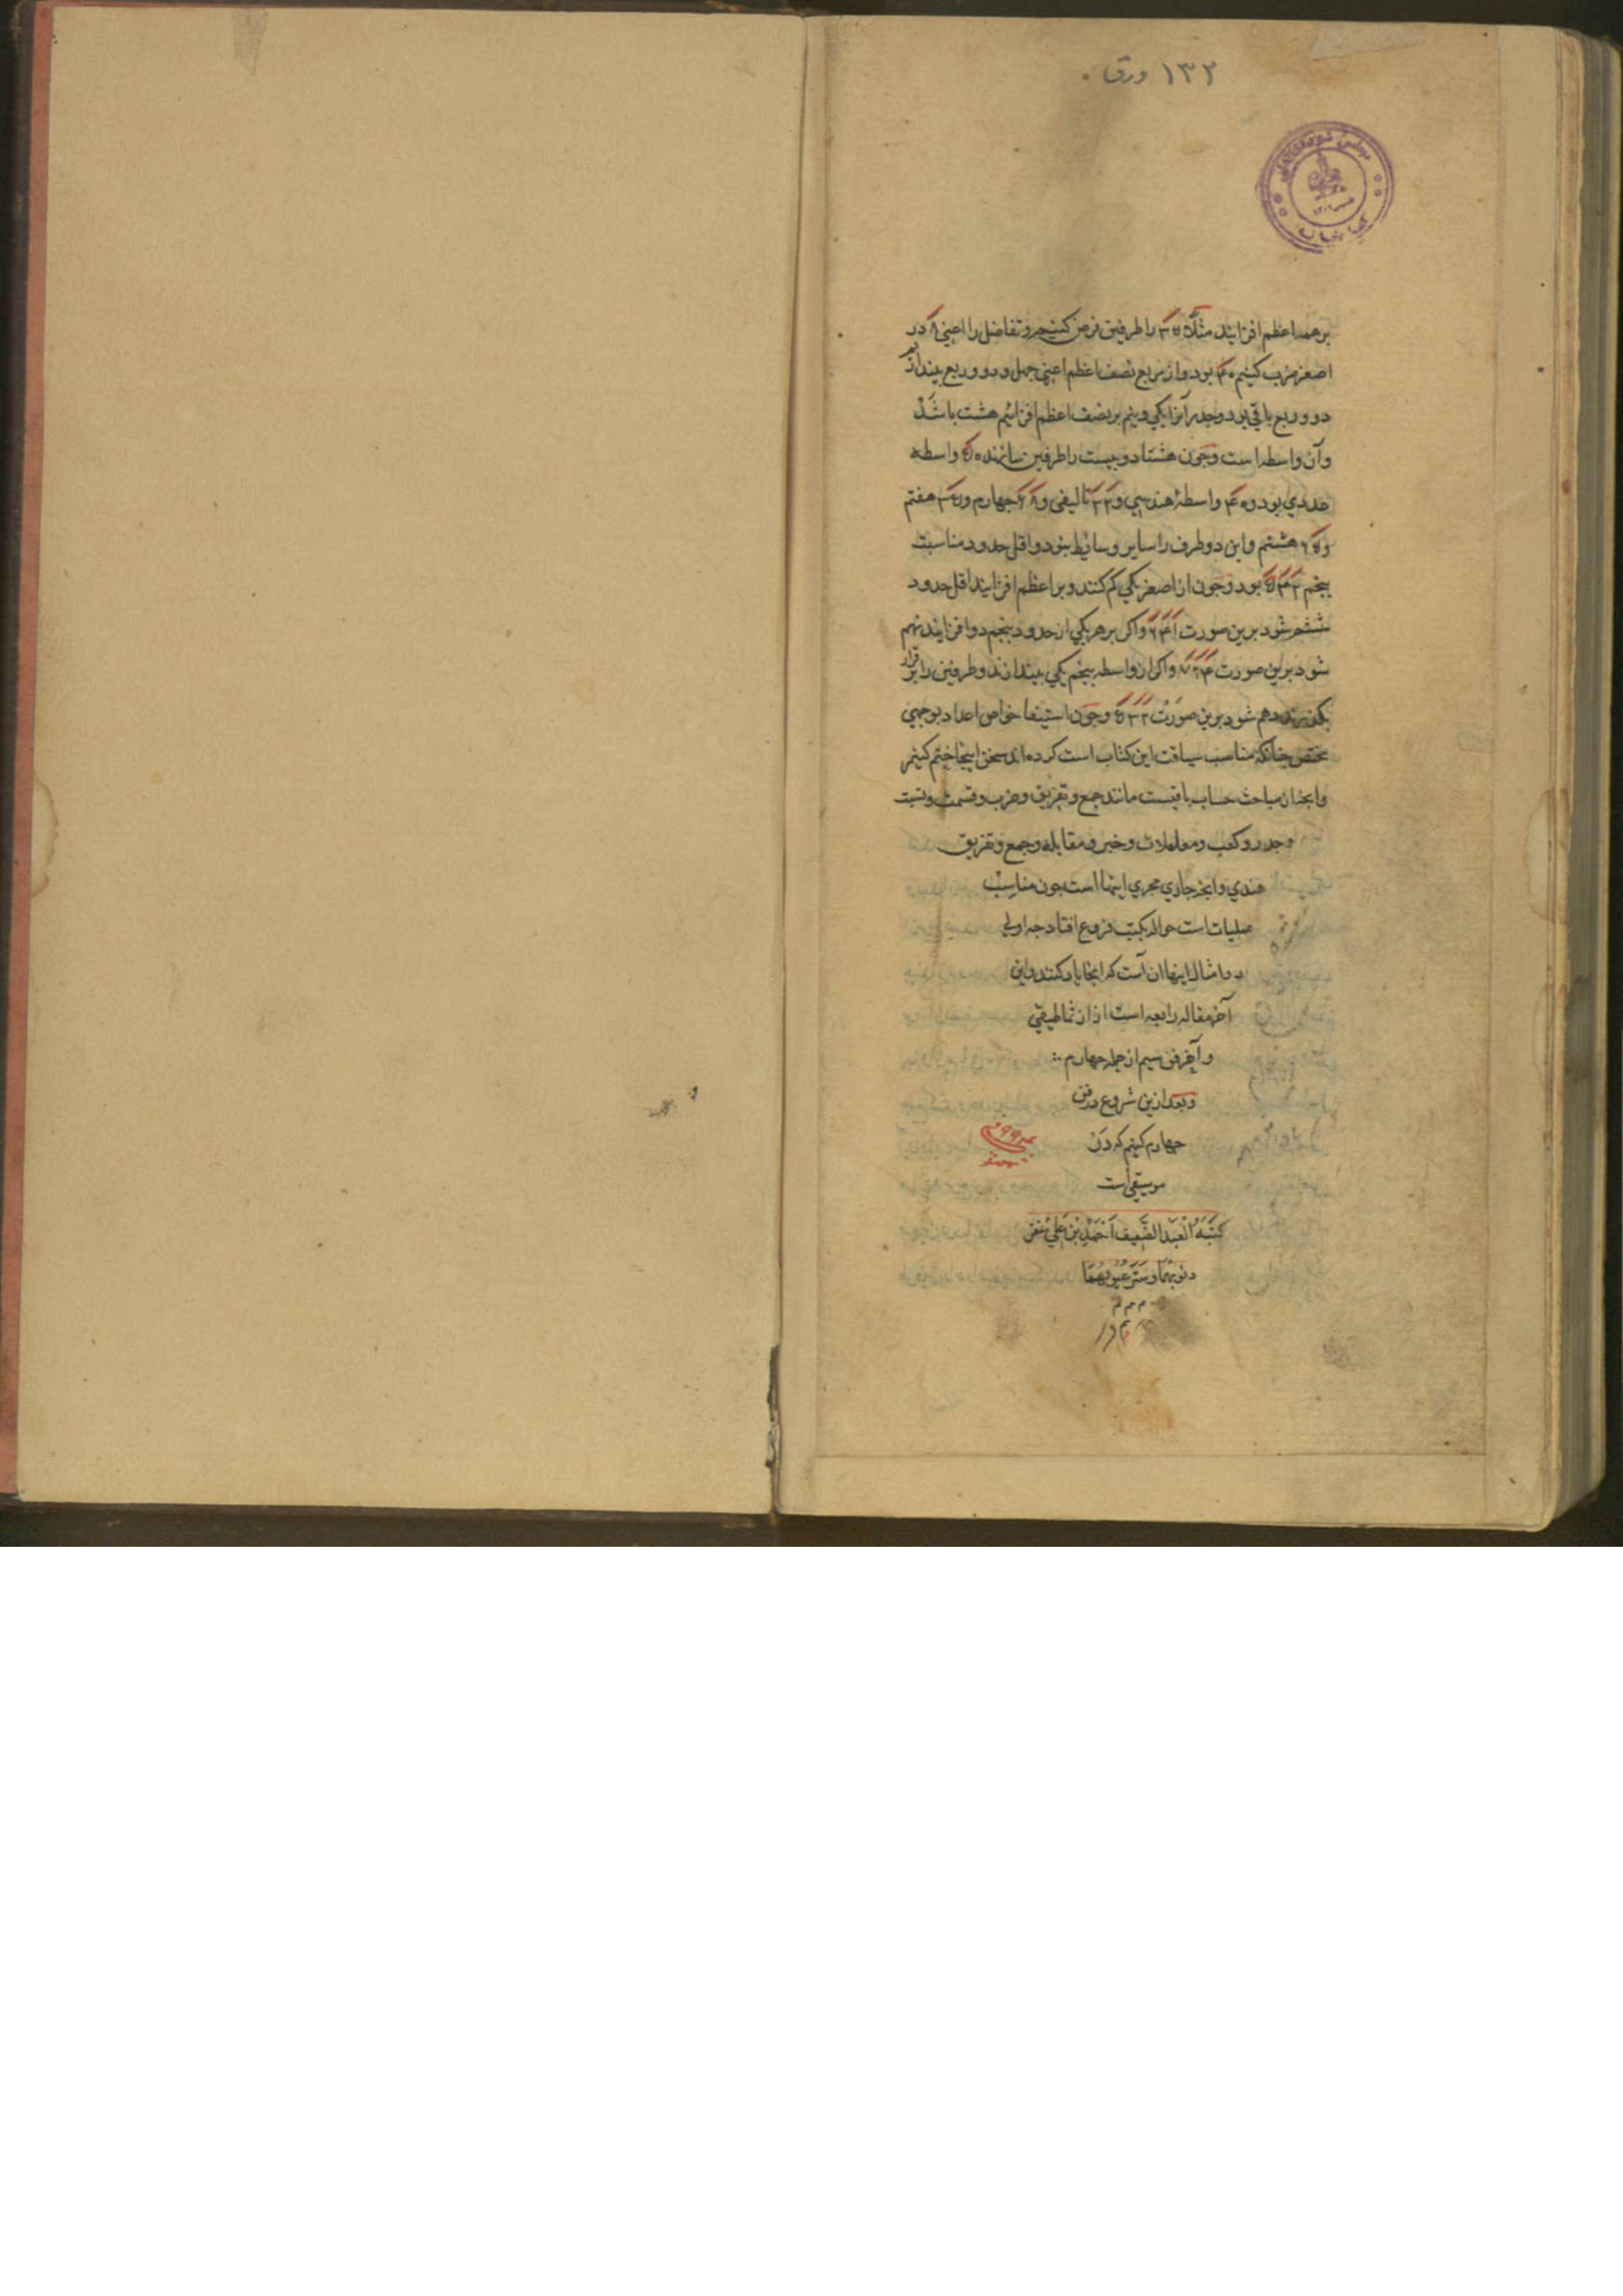 ۱۳۲ ورق
بر همه اعظم افزایند مثلا ۵ را طرفین فرض کنیم و تفاضل را اعنی ۸ در
اصغر ضرب کنیم ۴۰ بود و از مربع نصف اعظم اعنی چهل و دو و ربع بیندازیم
دو و ربع باقی بود و جذر آنرا یکی و نیم بر نصف اعظم افزائیم هشت باشد
و آن واسطه است و چون هشتاد و بیست را طرفین سازند ۵۰ واسطه
عددی بود و ۴۰ واسطهٔ هندسی و ۳۲ تالیفی و ۶۸ چهارم و هفتم
و هشتم و این دو طرف را سایر وسایط نبود و اقل حدود مناسبت
پنجم ۲ ۴ ۵ بود و چون از اصغر یکی کم کنند و بر اعظم افزایند اقل حدود
ششم شود برین صورت ۱ ۴ ۶ و اگر بر هر یکی از حدود پنجم دو افزایند نهم
شود برین صورت ۴ ۶ ۷ و اگر از واسطه پنجم یکی بیندازند و طرفین را بر قرار
بگذرند دهم شود برین صورت ۲ ۳ ۵ و چون استیفا خواص اعداد بوجهی
مختص چنانکه مناسب سیاقت این کتاب است کرده اند سخن اینجا ختم کنیم
و آنچه از مباحث حساب باقیست مانند جمع و تفریق و ضرب و قسمت و نسبت
و جذر و کعب و معاملات و جبر و مقابله و جمع و تفریق
هندی و آنچه جاری مجری اینها است چون مناسب
عملیات است حواله بکتب فروع افتاد چه اولی
در امثال اینها آن است که آنجا یاد کنند و این
آخر مقاله رابعه است از ارثماطیقی
و آخر فن سیم از جمله چهارم
و بعد ازین شروع در فن
چهارم کنیم که در آن
موسیقی است
کتبه العبد الضعیف احمد بن علی غفر
ذنوبهما و ستر عیوبهما
م م م